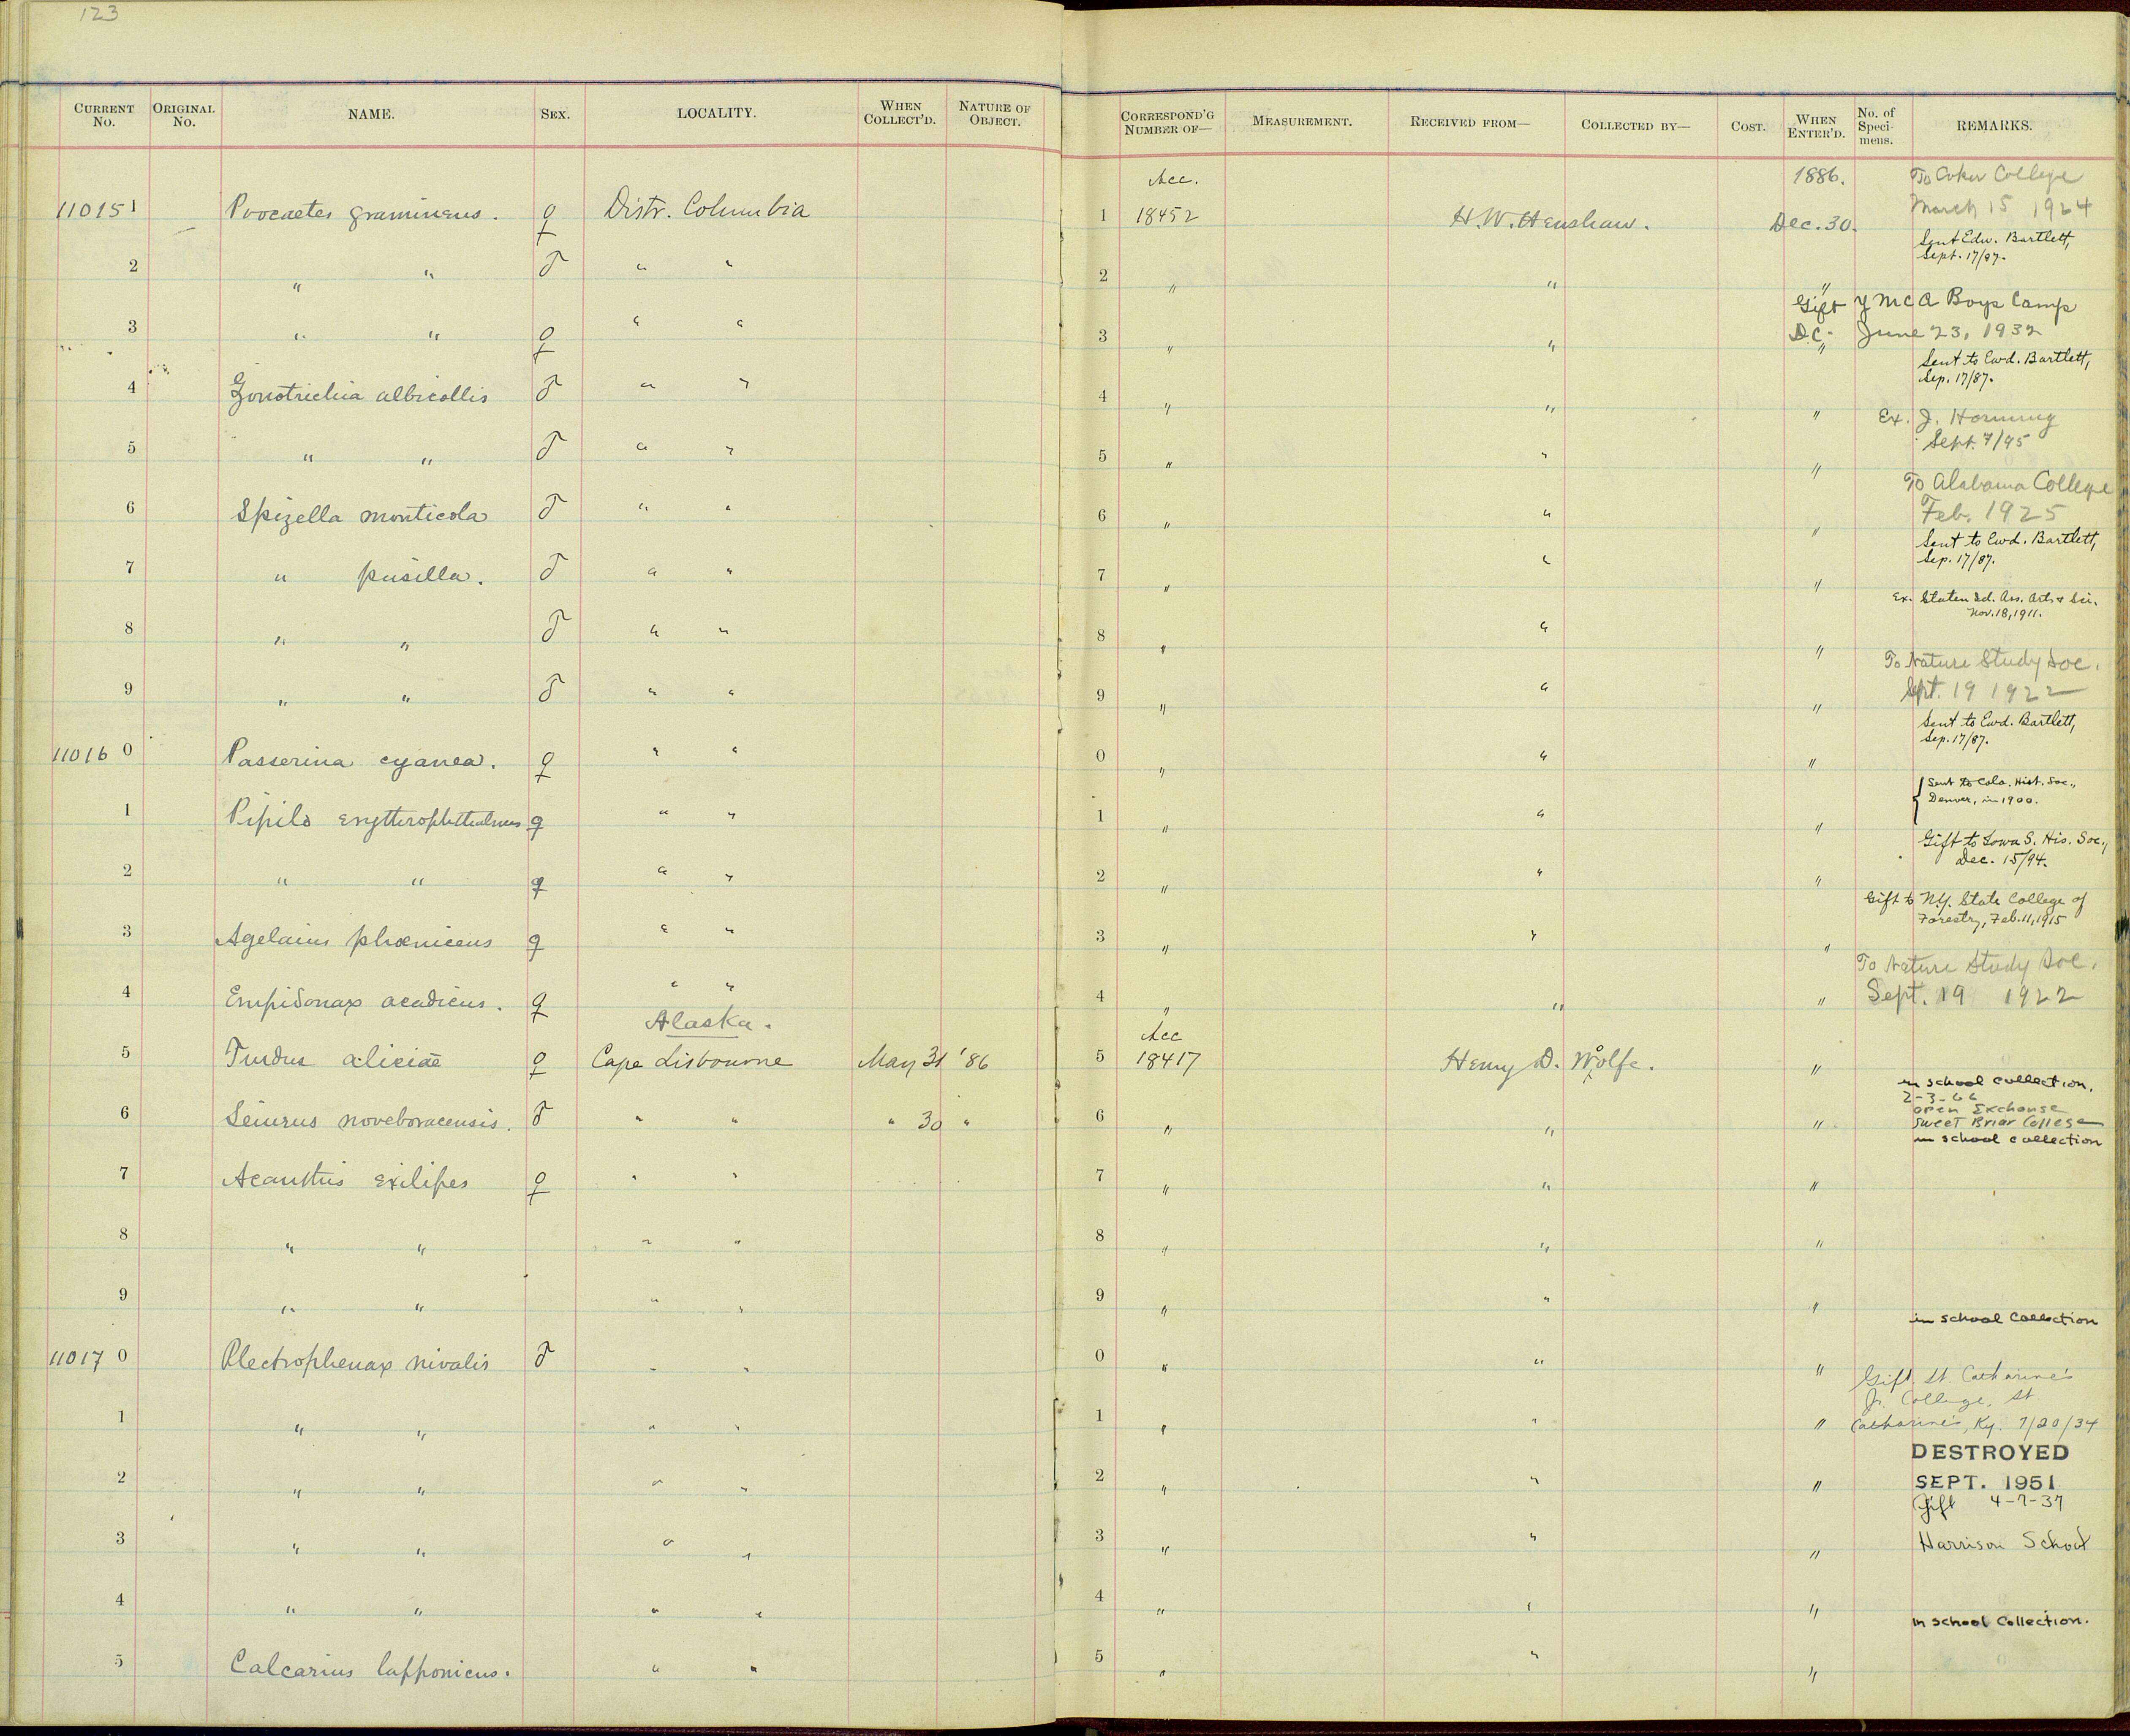 123
CURRENT No. ORIGINAL No. NAME. SEX. LOCALITY. WHEN COLLECT'D. NATURE OF OBJECT. CORRESPOND'G NUMBER OF— MEASUREMENT. RECEIVED FROM— COLLECTED BY— COST. WHEN ENTER'D. No. of Specimens. REMARKS.
Acc. 1886. To Coker College
March 15 1924
110151 Poocaetes gramineus. ♀ Distr. Columbia 1 18452 H. W. Henshaw. Dec. 30.
Sent Edw. Bartlett,
Sept. 17/87.
2 " " ♂ " " 2 " " "
Gift Y M C A Boys Camp
D.C. June 23, 1932
3 " " ♀ " " 3 " " "
Sent to Ewd. Bartlett,
Sep. 17/87.
4 Zonotrichia albicollis ♂ " " 4 " " "
Ex. J. Hornung
Sept. 7/95
5 " " ♂ " " 5 " " "
To Alabama College
Feb. 1925
6 Spizella monticola ♂ " " 6 " " "
Sent to Ewd. Bartlett,
Sep. 17/87.
7 " pusilla. ♂ " " 7 " " "
Ex. Staten Id. Ass. Arts & Sci.
Nov. 18, 1911.
8 " " ♂ " " 8 " " "
To Nature Study Soc.
Sept. 19 1922
9 " " ♂ " " 9 " " "
Sent to Ewd. Bartlett,
Sep. 17/87.
11016 0 Passerina cyanea. ♀ " " 0 " " "
{ Sent to Colo. Hist. Soc.,
Denver, in 1900.
1 Pipilo erythrophthalmus ♀ " " 1 " " "
Gift to Iowa S. His. Soc.,
Dec. 15/94.
2 " " ♀ " " 2 " " "
Gift to N.Y. State College of
Forestry, Feb. 11, 1915
3 Agelaius phœniceus ♀ " " 3 " " "
To Nature Study Soc.
Sept. 19 1922
4 Empidonax acadicus. ♀ " " 4 " " "
Alaska. Acc
5 Turdus aliciae ♀ Cape Lisbourne May 31 '86 5 18417 Henry D. Wolfe. "
in school collection.
2-3-66
open Exchange
Sweet Briar College
6 Seiurus noveboracensis. ♂ " " " 30 " 6 " " "
in school collection
7 Acanthis exilipes ♀ " " 7 " " "
8 " " " " 8 " " "
9 " " " " 9 " " "
in school Collection
11017 0 Plectrophenax nivalis ♂ " " 0 " " "
Gift St. Catharine's
Jr. College, St
1 " " " " 1 " " " Catharine's, Ky. 7/20/34
DESTROYED
2 " " " " 2 " " " SEPT. 1951
Gift 4-7-37
3 " " " " 3 " " " Harrison School
4 " " " " 4 " " "
in school Collection.
5 Calcarius lapponicus. " " 5 " " "